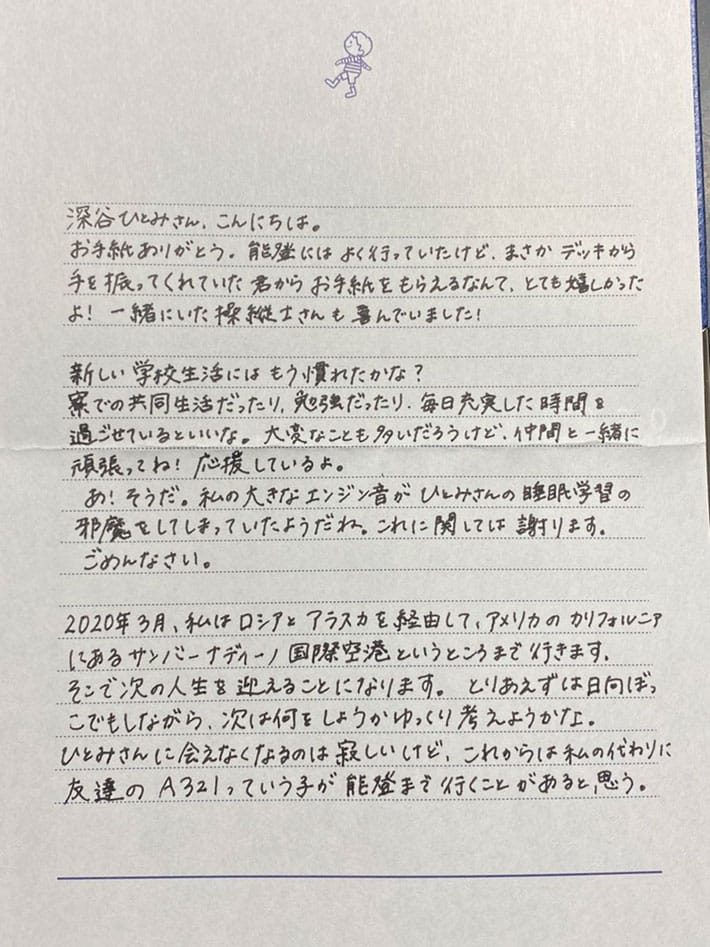 深谷ひとみさん、こんにちは。
お手紙ありがとう。能登にはよく行っていたけど、まさかデッキから
手を振ってくれていた君からお手紙をもらえるなんて、とても嬉しかった
よ！一緒にいた操縦士さんも喜んでいました！
新しい学校生活にはもう慣れたかな？
寮での共同生活だったり、勉強だったり、毎日充実した時間を
過ごせているといいな。大変なことも多いだろうけど、仲間と一緒に
頑張ってね！応援しているよ。
あ！そうだ。私の大きなエンジン音がひとみさんの睡眠学習の
邪魔をしてしまっていたようだね。これに関しては謝ります。
ごめんなさい。
2020年3月、私はロシアとアラスカを経由して、アメリカのカリフォルニア
にあるサンバーナディーノ国際空港というところまで行きます。
そこで次の人生を迎えることになります。とりあえずは日向ぼっ
こでもしながら、次は何をしようかゆっくり考えようかな。
ひとみさんに会えなくなるのは寂しいけど、これからは私の代わりに
友達のA321っていう子が能登まで行くことがあると思う。